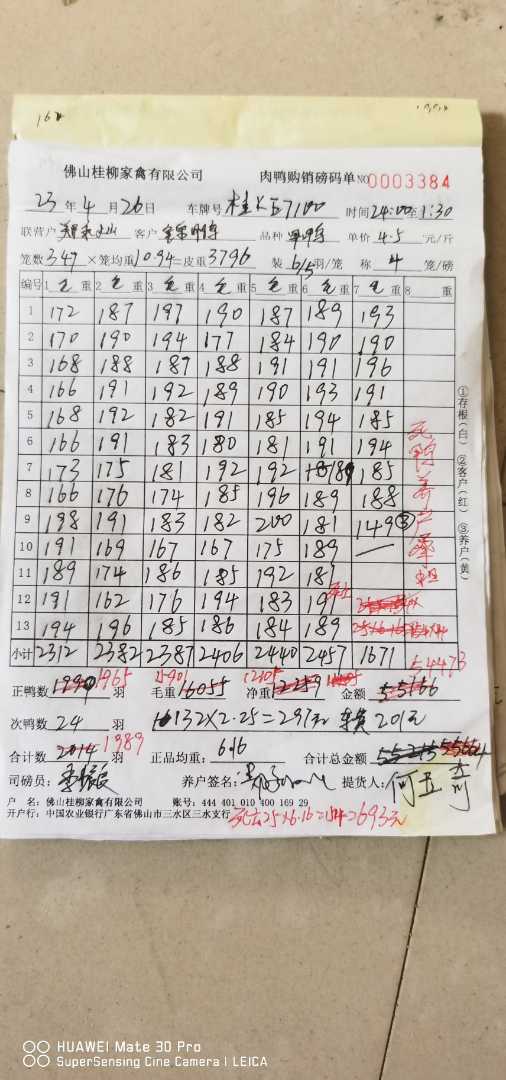 162
佛山桂柳家禽有限公司 肉鸭购销磅码单 NO 0003384
23 年 4 月 26 日 车牌号 7100 时间 24:00 至 1:30
联营户 客户 品种 单价 4.5 元/斤
笼数 347 × 笼均重 10.94 = 皮重 3796 装 6/5 羽/笼 称 4 笼/磅
编号 1 毛 重 2 毛 重 3 毛 重 4 毛 重 5 毛 重 6 毛 重 7 毛 重 8 重
1 172 187 197 190 187 189 193
2 170 190 194 177 184 190 190
3 168 188 187 188 191 191 196
4 166 191 192 189 190 193 191
5 168 192 182 191 185 194 185
6 166 191 183 180 181 191 194
7 173 175 181 192 192 189 185
8 166 176 174 185 196 189 188
9 198 191 183 182 200 181 149 ③
10 191 169 167 167 175 189 —
11 189 174 186 185 192 187
12 191 162 176 194 183 191
13 194 196 185 186 184 189
小计 2312 2382 2387 2406 2440 2457 1671
54473
①存根(白) ②客户(红) ③养户(黄)
正鸭数 1990 1965 羽 毛重 16055 净重 12259 金额 55166
次鸭数 24 羽 132×2.25=297元 201元
合计数 2014 1989 羽 正品均重: 6.16 合计总金额
司磅员: 养户签名: 提货人: 何
户 名: 佛山桂柳家禽有限公司 账号: 444 401 010 400 169 29
开户行: 中国农业银行广东省佛山市三水区三水支行
死亡25×6.16=154=693元
HUAWEI Mate 30 Pro
SuperSensing Cine Camera | LEICA